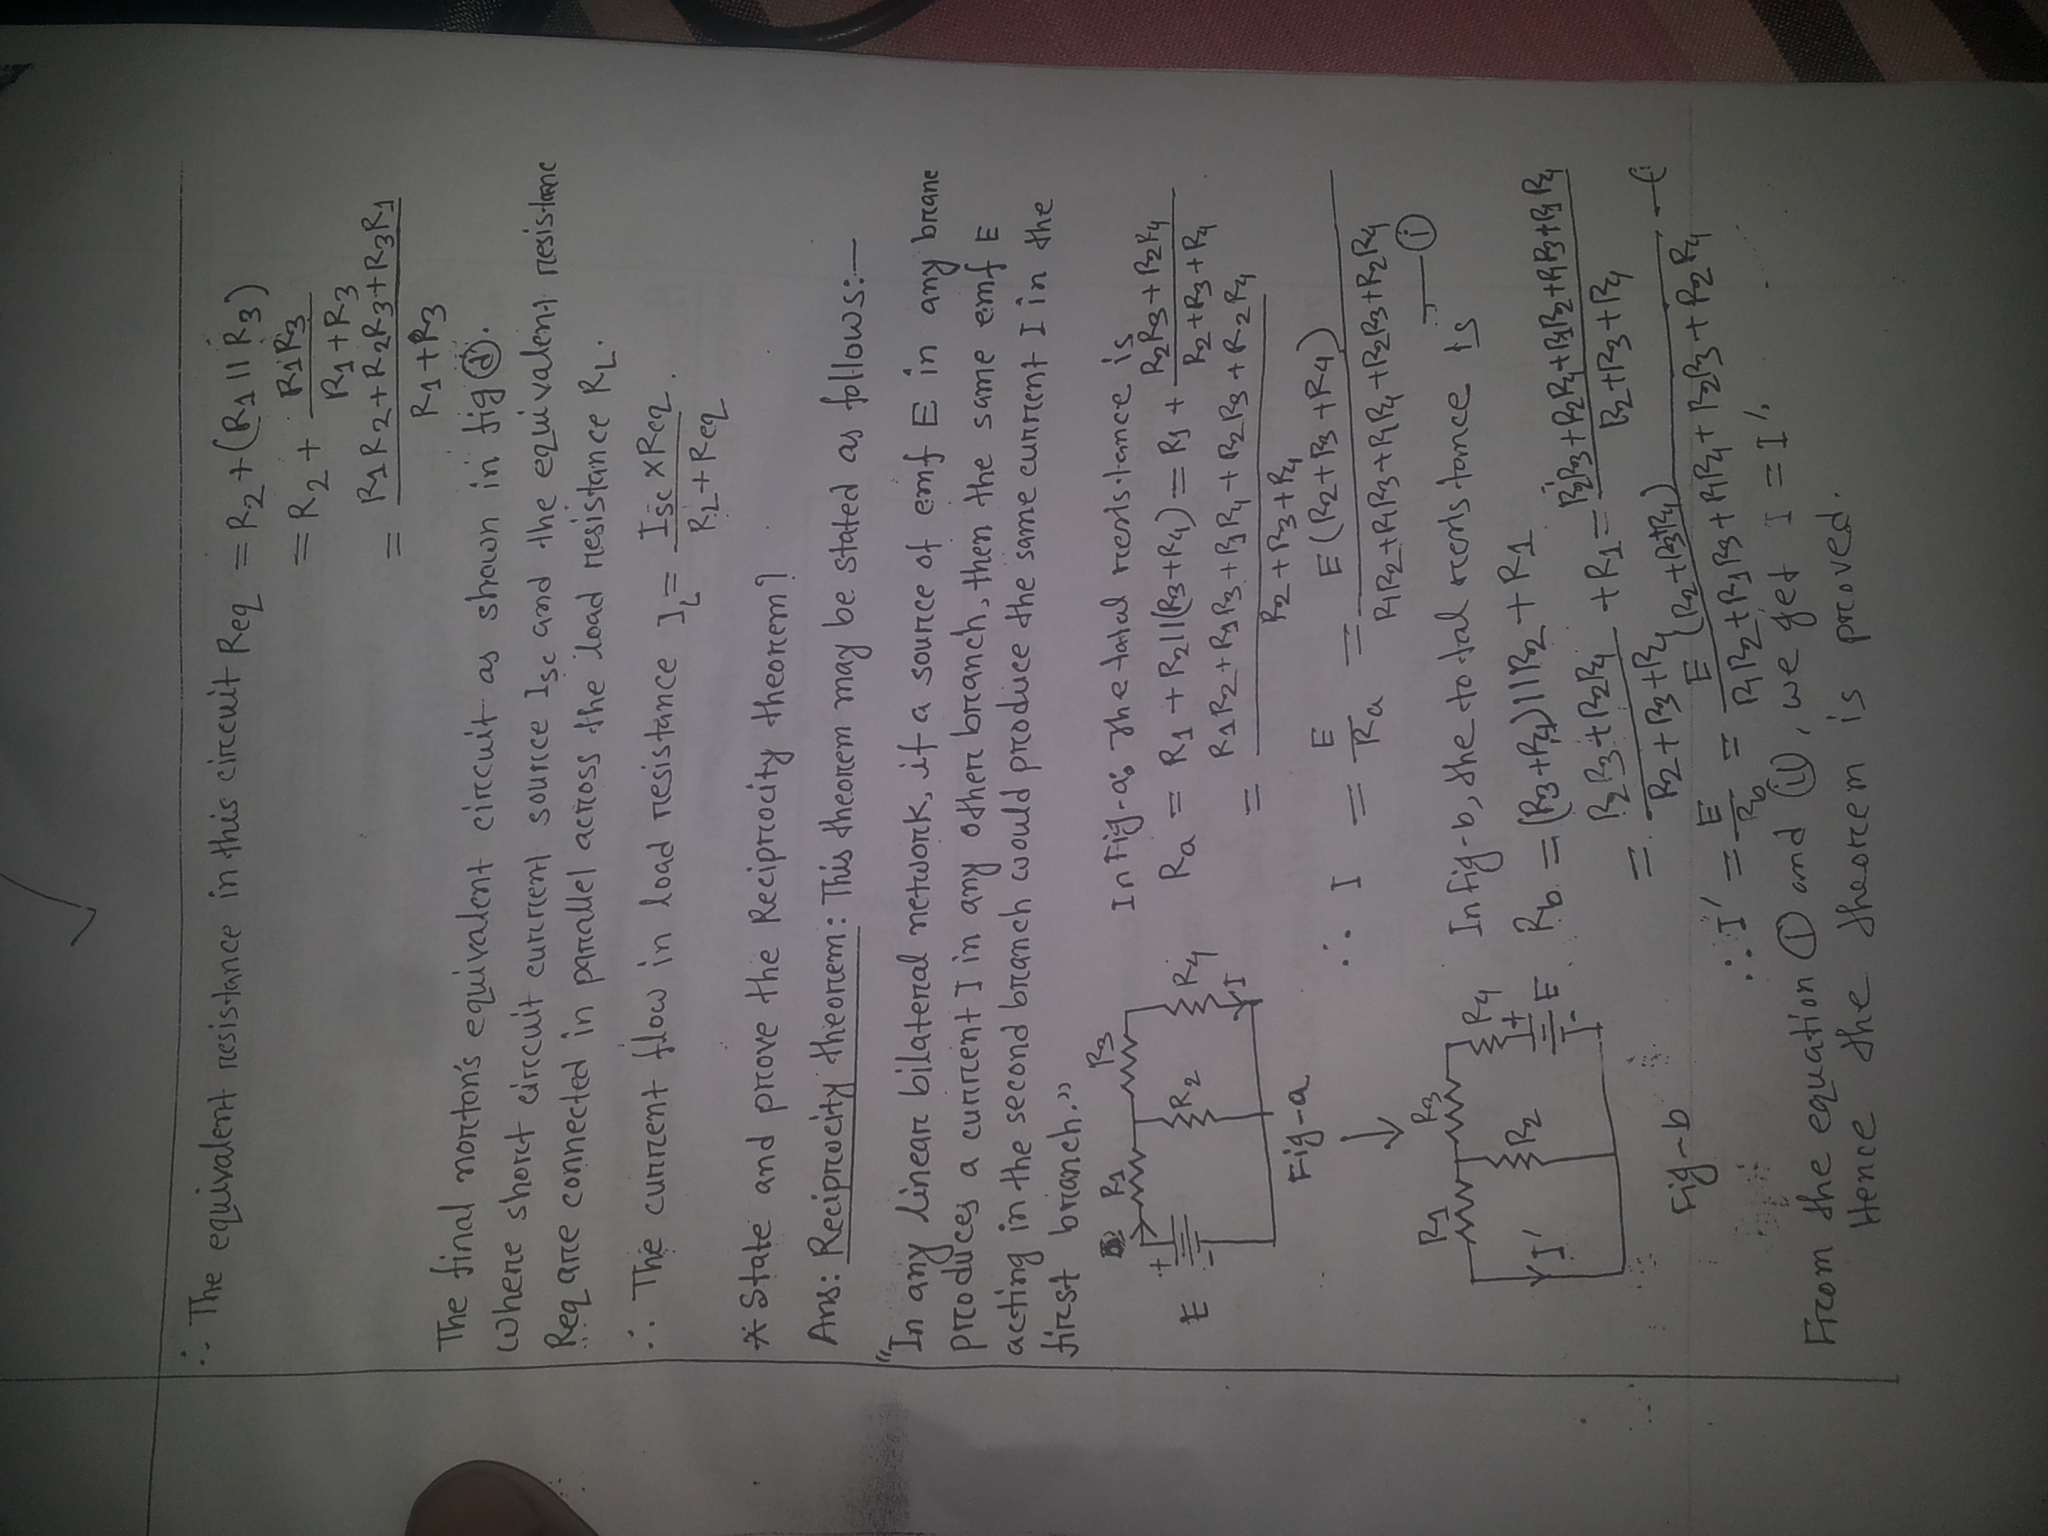 ∴ The equivalent resistance in this circuit Req = R2 + (R1 || R3)
= R2 + R1R3 / R1+R3
= R1R2+R2R3+R3R1 / R1+R3
The final norton's equivalent circuit as shown in fig (d).
where short circuit current source Isc and the equivalent resistanc
Req are connected in parallel across the load resistance RL.
∴ The current flow in load resistance IL = Isc×Req / RL+Req.
* State and prove the Reciprocity theorem?
Ans: Reciprocity theorem: This theorem may be stated as follows:—
"In any linear bilateral network, if a source of emf E in any branc
produces a current I in any other branch, then the same emf E
acting in the second branch would produce the same current I in the
first branch."
R1 R3
+ E - R2 R4 I
Fig-a
In Fig-a, The total resistance is
Ra = R1 + R2||(R3+R4) = R1 + R2R3+R2R4 / R2+R3+R4
= R1R2+R1R3+R1R4+R2R3+R2R4 / R2+R3+R4
∴ I = E / Ra = E(R2+R3+R4) / R1R2+R1R3+R1R4+R2R3+R2R4 — (i)
R1 R3
I' R2 R4 + E -
Fig-b
In fig-b, the total resistance is
Rb = (R3+R4)||R2 + R1
= R2R3+R2R4 / R2+R3+R4 + R1 = R2R3+R2R4+R1R2+R1R3+R1R4 / R2+R3+R4
∴ I' = E / Rb = E (R2+R3+R4) / R1R2+R1R3+R1R4+R2R3+R2R4 — (
From the equation (i) and (ii), we get I = I'.
Hence the theorem is proved.